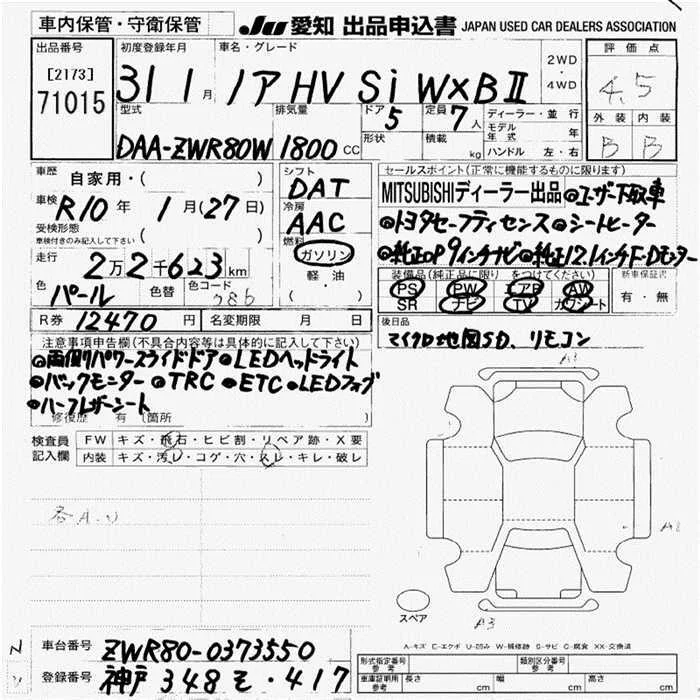 車内保管・守衛保管
JU 愛知 出品申込書 JAPAN USED CAR DEALERS ASSOCIATION
出品番号
[2173]
71015
初度登録年月
31 1月
車名・グレード
ノア HV Si W×BⅡ
2WD
・
4WD
評価点
4.5
外装 内装
B B
型式
DAA-ZWR80W
排気量
1800 CC
ドア 5
形状
定員 7人
積載 kg
ディーラー・並行
モデル年式 年
ハンドル 左・右
車歴
自家用・( )
車検 R10年 1月(27日)
受検形態
車検付きのみ記入して下さい ( )
走行 2万2千623km
色 パール 色替 色コード
シフト
DAT
冷房
AAC
燃料
ガソリン
軽・油
( )
R券 12470円 名変期限 月 日
セールスポイント(正常に機能するものに限ります)
MITSUBISHIディーラー出品 ●ユーザー下取車
●トヨタセーフティセンス ●シートヒーター
●純正OP9インチナビ ●純正12.1インチF・Dモニター
装備品(純正品に限り をつけてください)
PS PW エアB AW
SR ナビ TV カワシート
新車保証書
有・無
後日品
マイクロ地図SD、リモコン
注意事項申告欄(不具合内容等は具体的に記入して下さい)
●両側パワースライドドア ●LEDヘッドライト
●バックモニター ●TRC ●ETC ●LEDフォグ
●ハーフレザーシート
修復歴 有 (箇所
検査員記入欄
FW キズ・飛石・ヒビ割・リペア跡・X要
内装 キズ・汚レ・コゲ・穴・スレ・キレ・破レ
各A.U
A3
A2
スペア
A3
A-キズ E-エクボ U-凹み W-補修跡 S-サビ C-腐食 XX-交換済
車台番号 ZWR80-0373550
登録番号 神戸 348 そ ・417
形式指定番号 参考
類別区分番号 参考
車庫証明用 参考 長さ cm 幅 cm 高さ cm